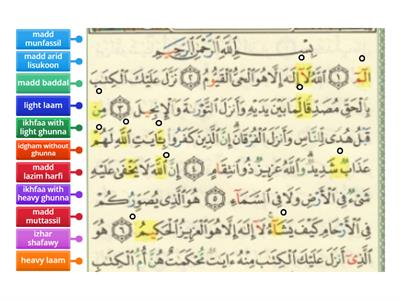 madd
munfassil
madd arid
lisukoon
madd baddal
light laam
ikhfaa with
light ghunna
idgham without
ghunna
madd
lazim harfi
ikhfaa with
heavy ghunna
madd
muttassil
izhar
shafawy
heavy laam
بِسْمِ ٱللَّهِ ٱلرَّحْمَٰنِ ٱلرَّحِيمِ
الٓمٓ ١ ٱللَّهُ لَآ إِلَٰهَ إِلَّا هُوَ ٱلْحَىُّ ٱلْقَيُّومُ ٢ نَزَّلَ عَلَيْكَ ٱلْكِتَٰبَ
بِٱلْحَقِّ مُصَدِّقًا لِّمَا بَيْنَ يَدَيْهِ وَأَنزَلَ ٱلتَّوْرَىٰةَ وَٱلْإِنجِيلَ ٣ مِن
قَبْلُ هُدًى لِّلنَّاسِ وَأَنزَلَ ٱلْفُرْقَانَ إِنَّ ٱلَّذِينَ كَفَرُوا۟ بِـَٔايَٰتِ ٱللَّهِ لَهُمْ
عَذَابٌ شَدِيدٌ وَٱللَّهُ عَزِيزٌ ذُو ٱنتِقَامٍ ٤ إِنَّ ٱللَّهَ لَا يَخْفَىٰ عَلَيْهِ
شَىْءٌ فِى ٱلْأَرْضِ وَلَا فِى ٱلسَّمَآءِ ٥ هُوَ ٱلَّذِى يُصَوِّرُكُمْ
فِى ٱلْأَرْحَامِ كَيْفَ يَشَآءُ لَآ إِلَٰهَ إِلَّا هُوَ ٱلْعَزِيزُ ٱلْحَكِيمُ ٦ هُوَ
ٱلَّذِىٓ أَنزَلَ عَلَيْكَ ٱلْكِتَٰبَ مِنْهُ ءَايَٰتٌ مُّحْكَمَٰتٌ هُنَّ أُمُّ ٱلْكِتَٰبِ